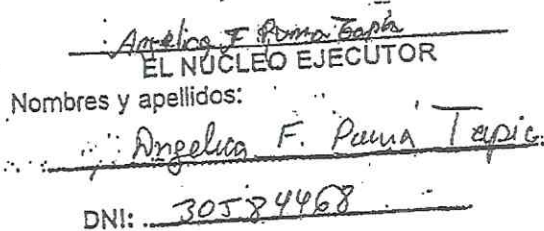 Angelica F Puma Tapia
EL NUCLEO EJECUTOR
Nombres y apellidos:
Angelica F. Puma Tapia.
DNI: 30584468